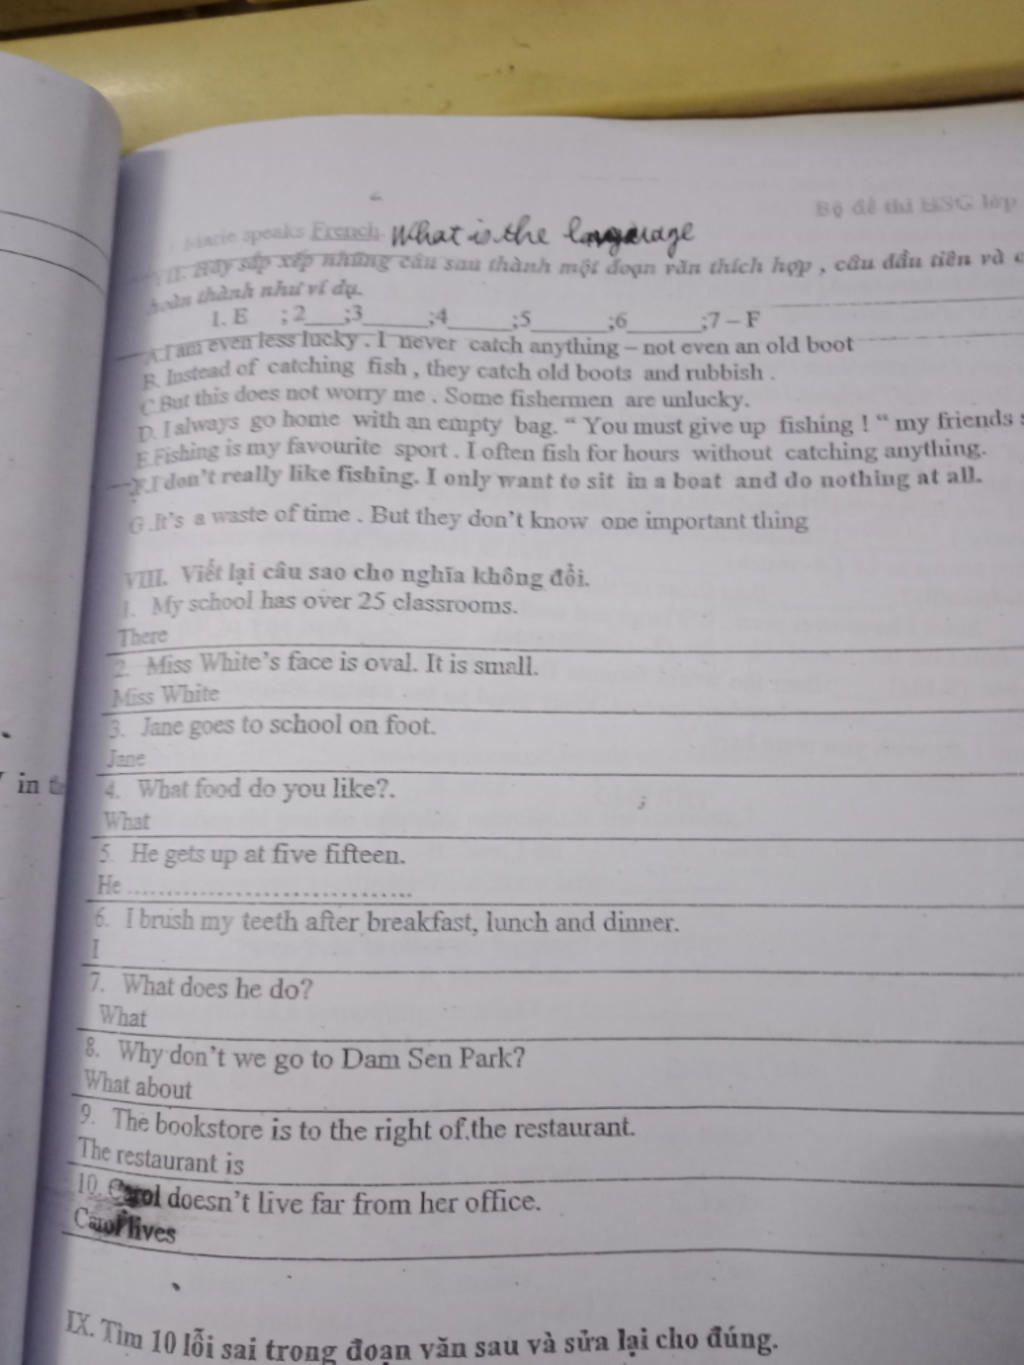 Bộ đề thi HSG lớp
Marie speaks French. What is the language
VII. Hãy sắp xếp những câu sau thành một đoạn văn thích hợp , câu đầu tiên và c
hoàn thành như ví dụ.
1. E ; 2___;3______;4______;5_______;6_______;7 – F
A.I am even less lucky . I never catch anything – not even an old boot
B. Instead of catching fish , they catch old boots and rubbish .
C.But this does not worry me . Some fishermen are unlucky.
D. I always go home with an empty bag. “ You must give up fishing ! “ my friends s
E.Fishing is my favourite sport . I often fish for hours without catching anything.
F.I don’t really like fishing. I only want to sit in a boat and do nothing at all.
G .It’s a waste of time . But they don’t know one important thing
VIII. Viết lại câu sao cho nghĩa không đổi.
1. My school has over 25 classrooms.
There
2. Miss White’s face is oval. It is small.
Miss White
3. Jane goes to school on foot.
Jane
in
4. What food do you like?.
What
5. He gets up at five fifteen.
He ..................................
6. I brush my teeth after breakfast, lunch and dinner.
I
7. What does he do?
What
8. Why don’t we go to Dam Sen Park?
What about
9. The bookstore is to the right of.the restaurant.
The restaurant is
10. Carol doesn’t live far from her office.
Carol lives
IX. Tìm 10 lỗi sai trong đoạn văn sau và sửa lại cho đúng.